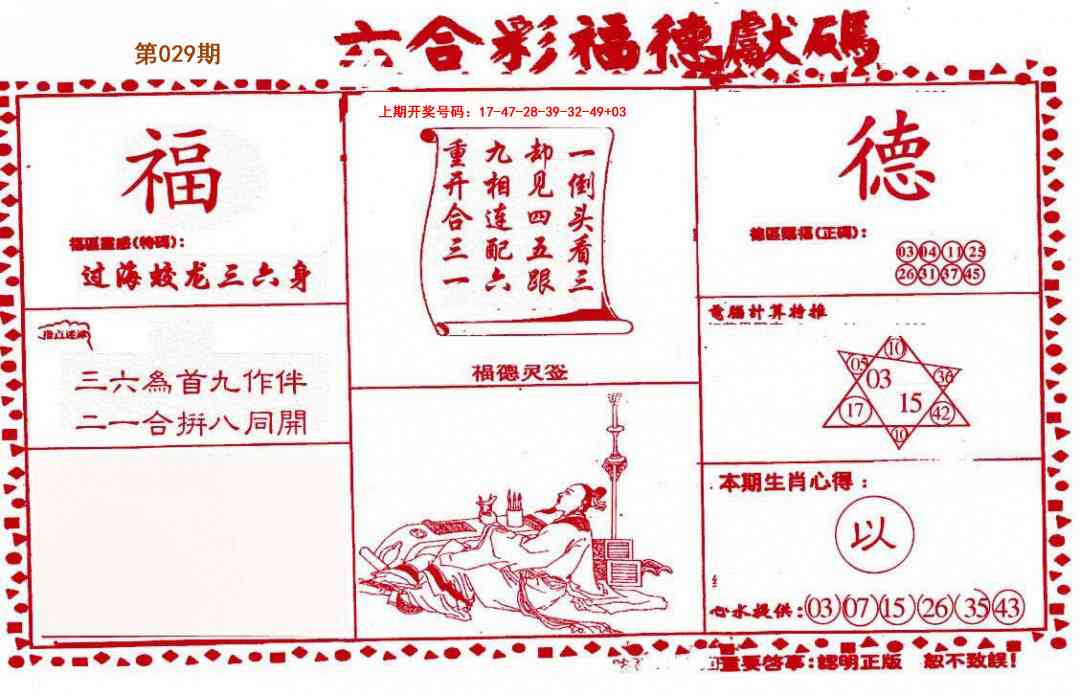 第029期
六合彩福德獻碼
福
福區靈感(特碼):
过海蛟龙三六身
三六為首九作伴
二一合拼八同開
上期开奖号码：17-47-28-39-32-49+03
一倒头看三
却见四五跟
九相连配六
重开合三一
福德灵签
德
德區賜福(正碼):
03 04 11 25
26 31 37 45
電腦計算特推
10
05 03 36
17 15 42
10
本期生肖心得：
以
心水提供:03 07 15 26 35 43
重要啓事:認明正版 恕不致誤!